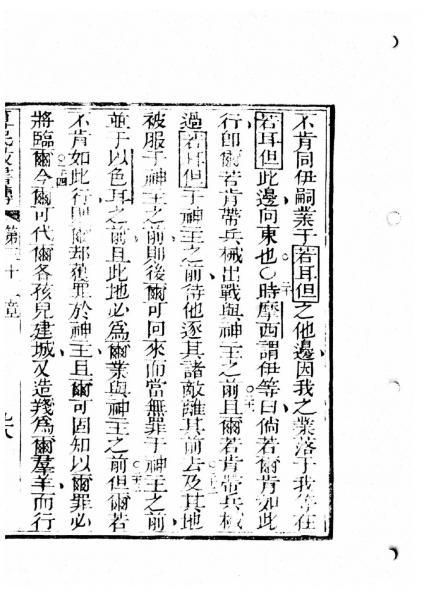 不肯同伊嗣業于若耳但之他邊因我之業落于我等在
若耳但此邊向東也〇二十時摩西謂伊等曰倘若爾肯如此
行卽爾若肯帶兵械出戰與神主之前二十一且爾若肯帶兵械
過若耳但于神主之前待他逐其諸敵離其前去二十二及其地
被服于神主之前則後爾可回來而當無罪于神主之前
並于以色耳之前且此地必為爾業與神主之前二十三但爾若
不肯如此行則爾却獲罪於神主且爾可固知以爾罪必
將臨爾二十四今爾可代爾各孩兒建城又造棧為爾羣羊而行
第三十二章